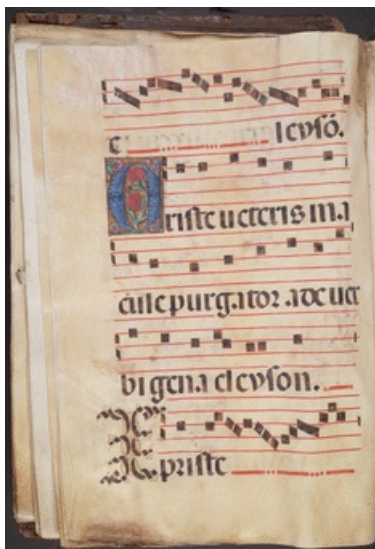 e leysõ.
Criste ueteris ma
cule purgator ade uer
bi gena eleyson.
Xpriste